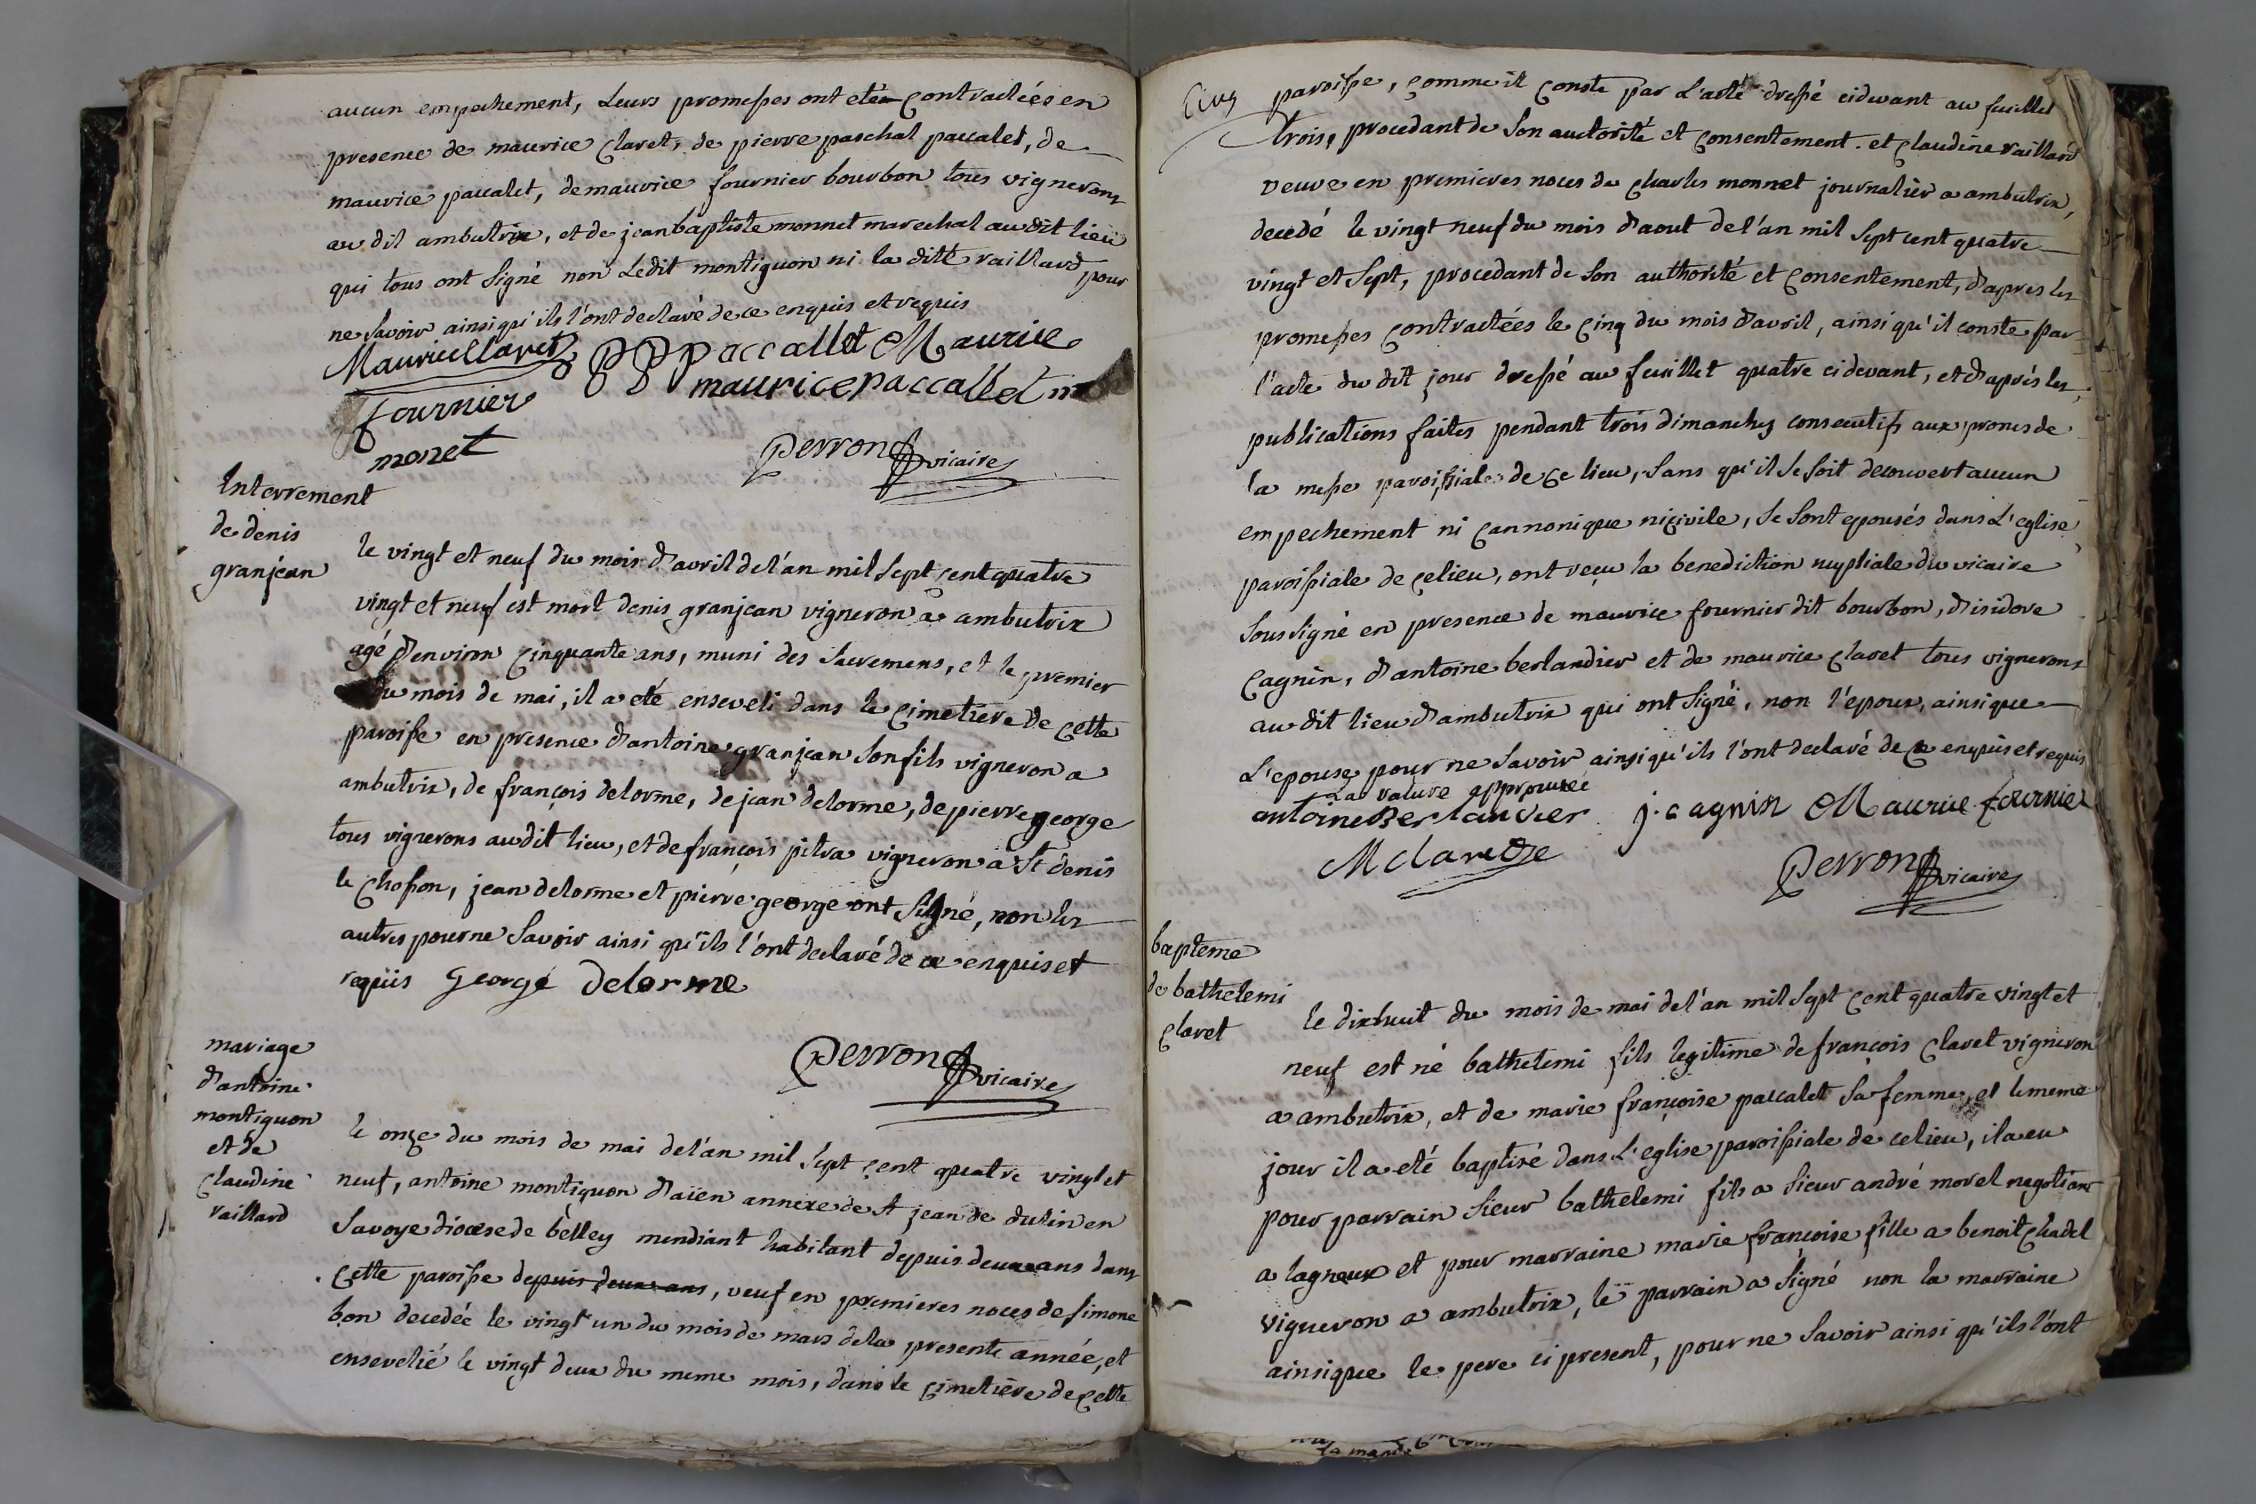 aucun empechement, Leurs promesses ont eté contractées en
presence de maurice Claret, de pierre paschal paccalet, de
maurice paccalet, de maurice fournier bourbon tous vignerons
au dit ambutrix, et de jean baptiste monnet marechal au dit lieu
qui tous ont signé non Ledit montiguon ni la ditte raillard pour
ne Savoir ainsi qu'ils l'ont declaré de ce enquis et requis
Maurice Claret PPPaccallet Maurice
maurice paccallet
fournier
monet
perron vicaire
Interrement
de denis
granjean
le vingt et neuf du mois d'avril de l'an mil Sept cent quatre
vingt et neuf est mort denis granjean vigneron a ambutrix
agé d'environ cinquante ans, muni des Sacremens, et le premier
du mois de mai, il a eté enseveli dans le cimetiere de cette
paroisse en presence d'antoine granjean son fils vigneron a
ambutrix, de françois delorme, de jean delorme, de pierre george
tous vignerons audit lieu, et de françois pitra vigneron a St denis
le Chosson, jean delorme et pierre george ont signé, non les
autres pour ne Savoir ainsi qu'ils l'ont declaré de ce enquis et
requis George Delorme
perron vicaire
mariage
d'antoine
montiguon
et de
Claudine
raillard
le onze du mois de mai de l'an mil sept cent quatre vingt et
neuf, antoine montiguon d'aïen annexe de st jean de dulin en
Savoye diocese de belley mendiant habitant depuis deux ans dans
cette paroisse depuis deux ans, veuf en premieres noces de simone
bon decedée le vingt un du mois de mars de la presente année, et
ensevelié le vingt deux du meme mois, dans le cimetière de cette
Cinq
paroisse, comme il Conste par L'acte dressé cidevant au feuillet
trois, procedant de Son auctorité et Consentement. et Claudine raillard
veuve en premieres noces de Charles monnet journalier a ambutrix,
decedé le vingt neuf du mois d'aout de l'an mil Sept cent quatre
vingt et Sept, procedant de Son authorité et Consentement, d'apres les
promesses Contractées le cinq du mois d'avril, ainsi qu'il conste par
l'acte du dit jour dressé au feuillet quatre cidevant, et d'après les
publications faites pendant trois dimanches consecutifs aux prones de
la messe paroissiale de ce lieu, sans qu'il Se soit decouvert aucun
empechement ni cannonique ni civile, Se Sont epousés dans L'eglise
paroissiale de ce lieu, ont reçu la benediction nuptiale du vicaire
Soussigné en presence de maurice fournier dit bourbon, d'isidore
Cagnin, d'antoine berlandier et de maurice Claret tous vignerons
au dit lieu d'ambutrix qui ont signé, non l'epoux, ainsi que
L'epouse pour ne Savoir ainsi qu'ils l'ont declaré de ce enquis et requis
La rature approuvée
antoine Berlandier j. cagnin Maurice fournier
M claret
perron vicaire
bapteme
de bathelemi
Claret
le dixhuit du mois de mai de l'an mil Sept cent quatre vingt et
neuf est né bathelemi fils legitime de françois Claret vigneron
a ambutrix, et de marie françoise paccalet Sa femme, et le meme
jour il a eté baptisé dans L'eglise paroissiale de ce lieu, il a eu
pour parrain Sieur bathelemi fils a sieur andré morel negotiant
a lagneux et pour marraine marie françoise fille a benoit Chadel
vigneron a ambutrix, le parrain a Signé non la marraine
ainsi que le pere ci present, pour ne Savoir ainsi qu'ils l'ont